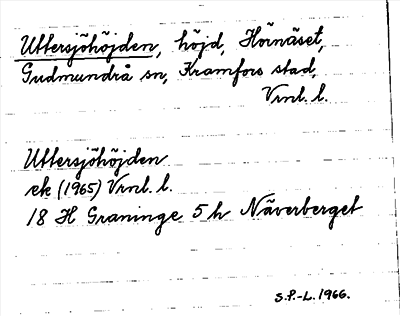 Uttersjöhöjden, höjd, Hörnäset,
Gudmundrå sn, Kramfors stad,
Vrnl. l.
Uttersjöhöjden
ek (1965) Vrnl. l.
18 H Graninge 5 h Näverberget
S.P.-L. 1966.